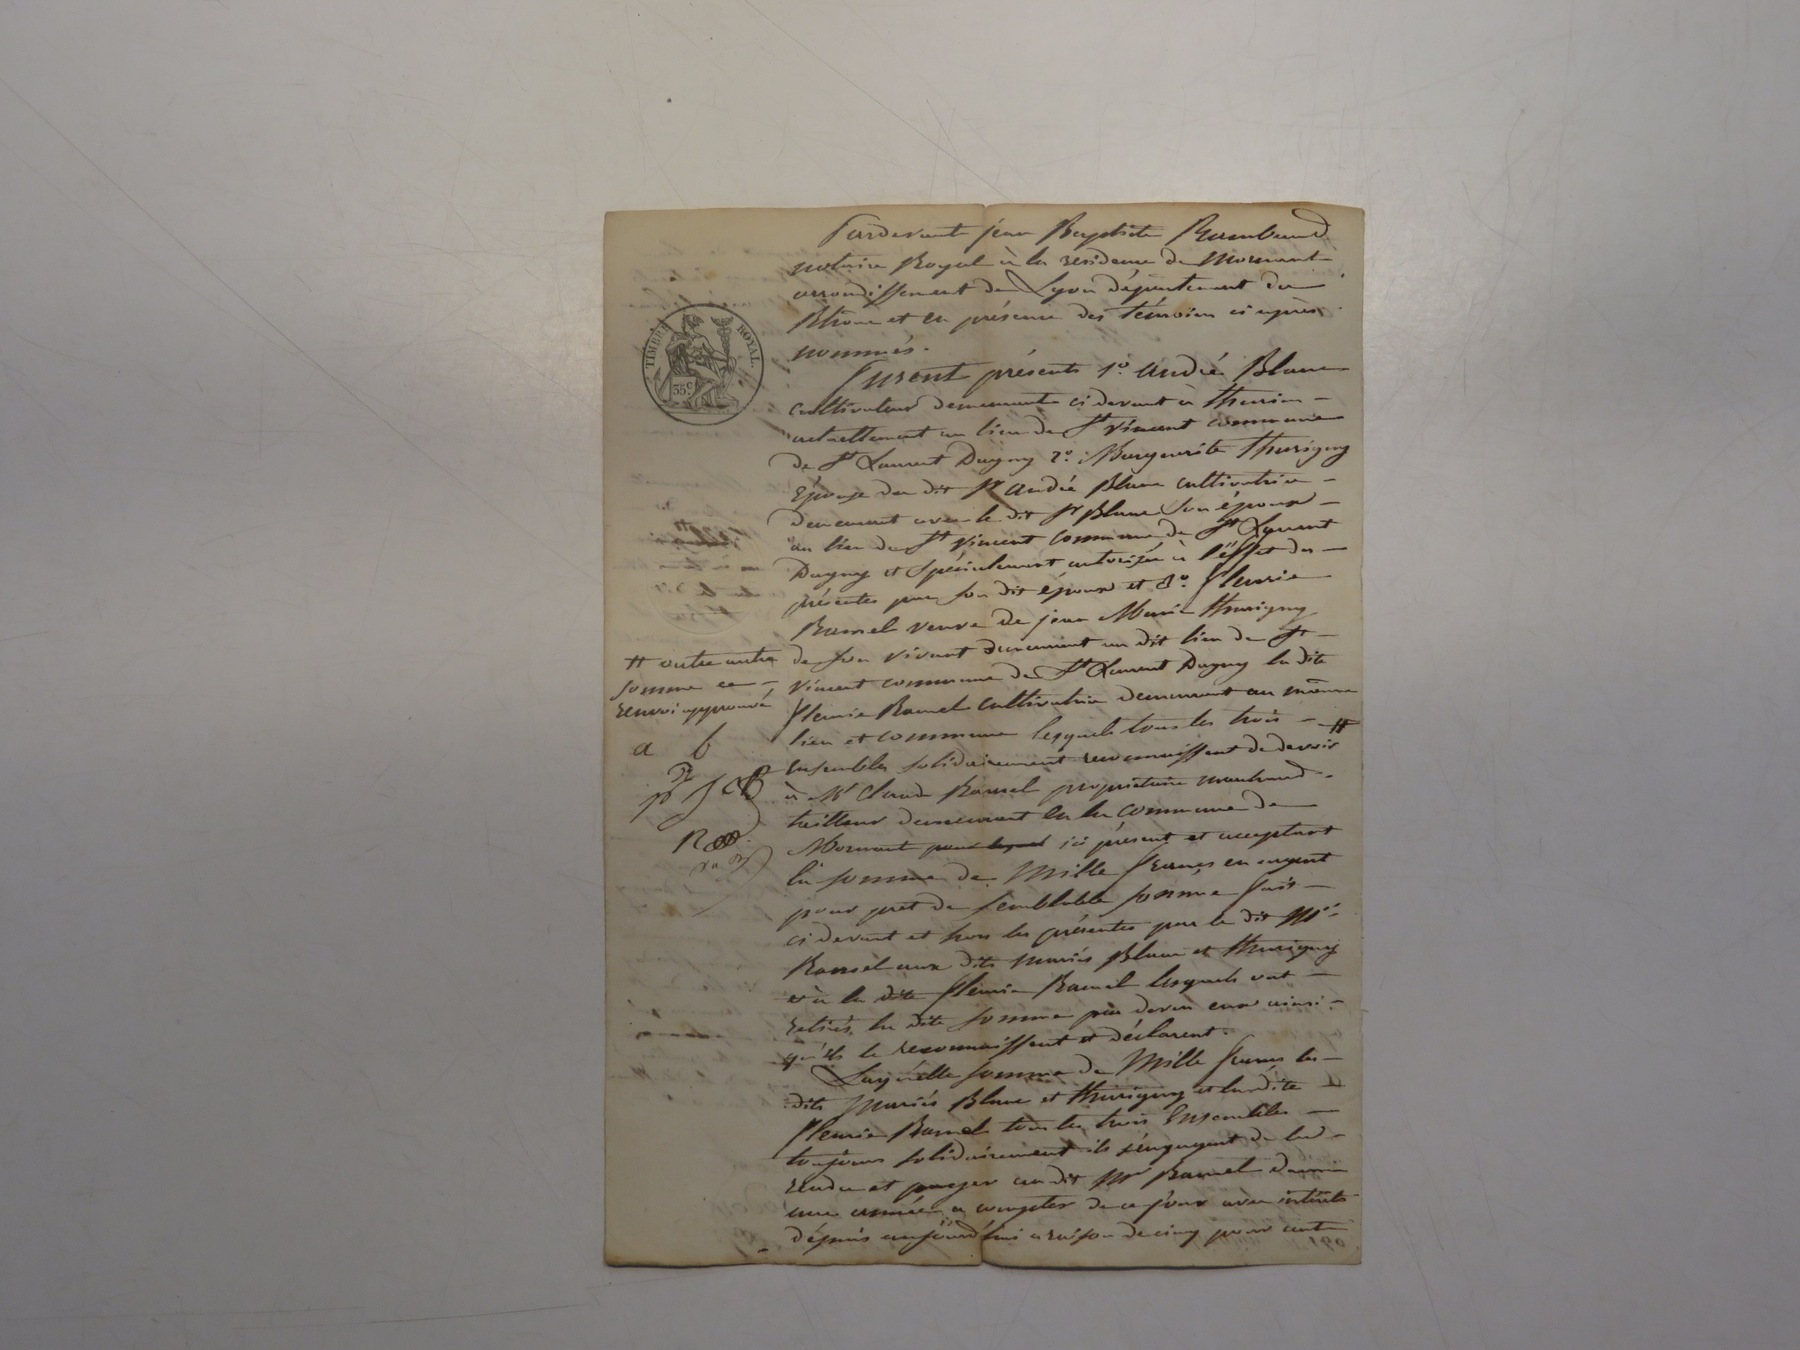 Pardevant jean Baptiste Rambaud
notaire Royal à la residence de Mornant
arrondissement de Lyon département du
Rhône et en présence des témoins ci après
nommés.
TIMBRE ROYAL.
35 c.
Furent présents 1° andré Blanc
cultivateur demeurant ci devant à thurins
actuellement au lieu de St Vincent commune
de St Laurent Dagny 2° Marguerite thurigny
Epouse du dit Sr andré Blanc cultivatrice
demeurant avec le dit Sr Blanc son époux
au lieu de St Vincent commune de St Laurent
Dagny et spécialement autorisée à l'effet des
présentes par son dit époux et 3° fleurie
Ramel veuve de jean Marie thurigny
de son vivant demeurant au dit lieu de St
Vincent commune de St Laurent Dagny la dite
fleurie Ramel cultivatrice demeurant au même
lieu et commune lesquels tous les trois
Ensembles solidairement reconnaissent de devoir #
à Mr Claude Ramel propriétaire marchand
tailleur demeurant en la commune de
Mornant ici présent et acceptant
la somme de Mille francs en argent
pour pret de semblable somme fait
ci devant et hors les présentes par le dit Mr
Ramel aux dits mariés Blanc et thurigny
et à la dite fleurie Ramel lesquels ont
retiré la dite somme par devers eux ainsi
qu'ils le reconnaissent et déclarent.
Laquelle somme de Mille francs les
dits mariés Blanc et thurigny et la dite
fleurie Ramel tous les trois Ensembles
toujours solidairement ils s'engagent de la
rendre et payer au dit Mr Ramel dans
une année a compter de ce jour avec intérêts
dépuis aujourd'hui a raison de cinq pour cent
# outre autre
somme ce
renvoi approuvé
a b